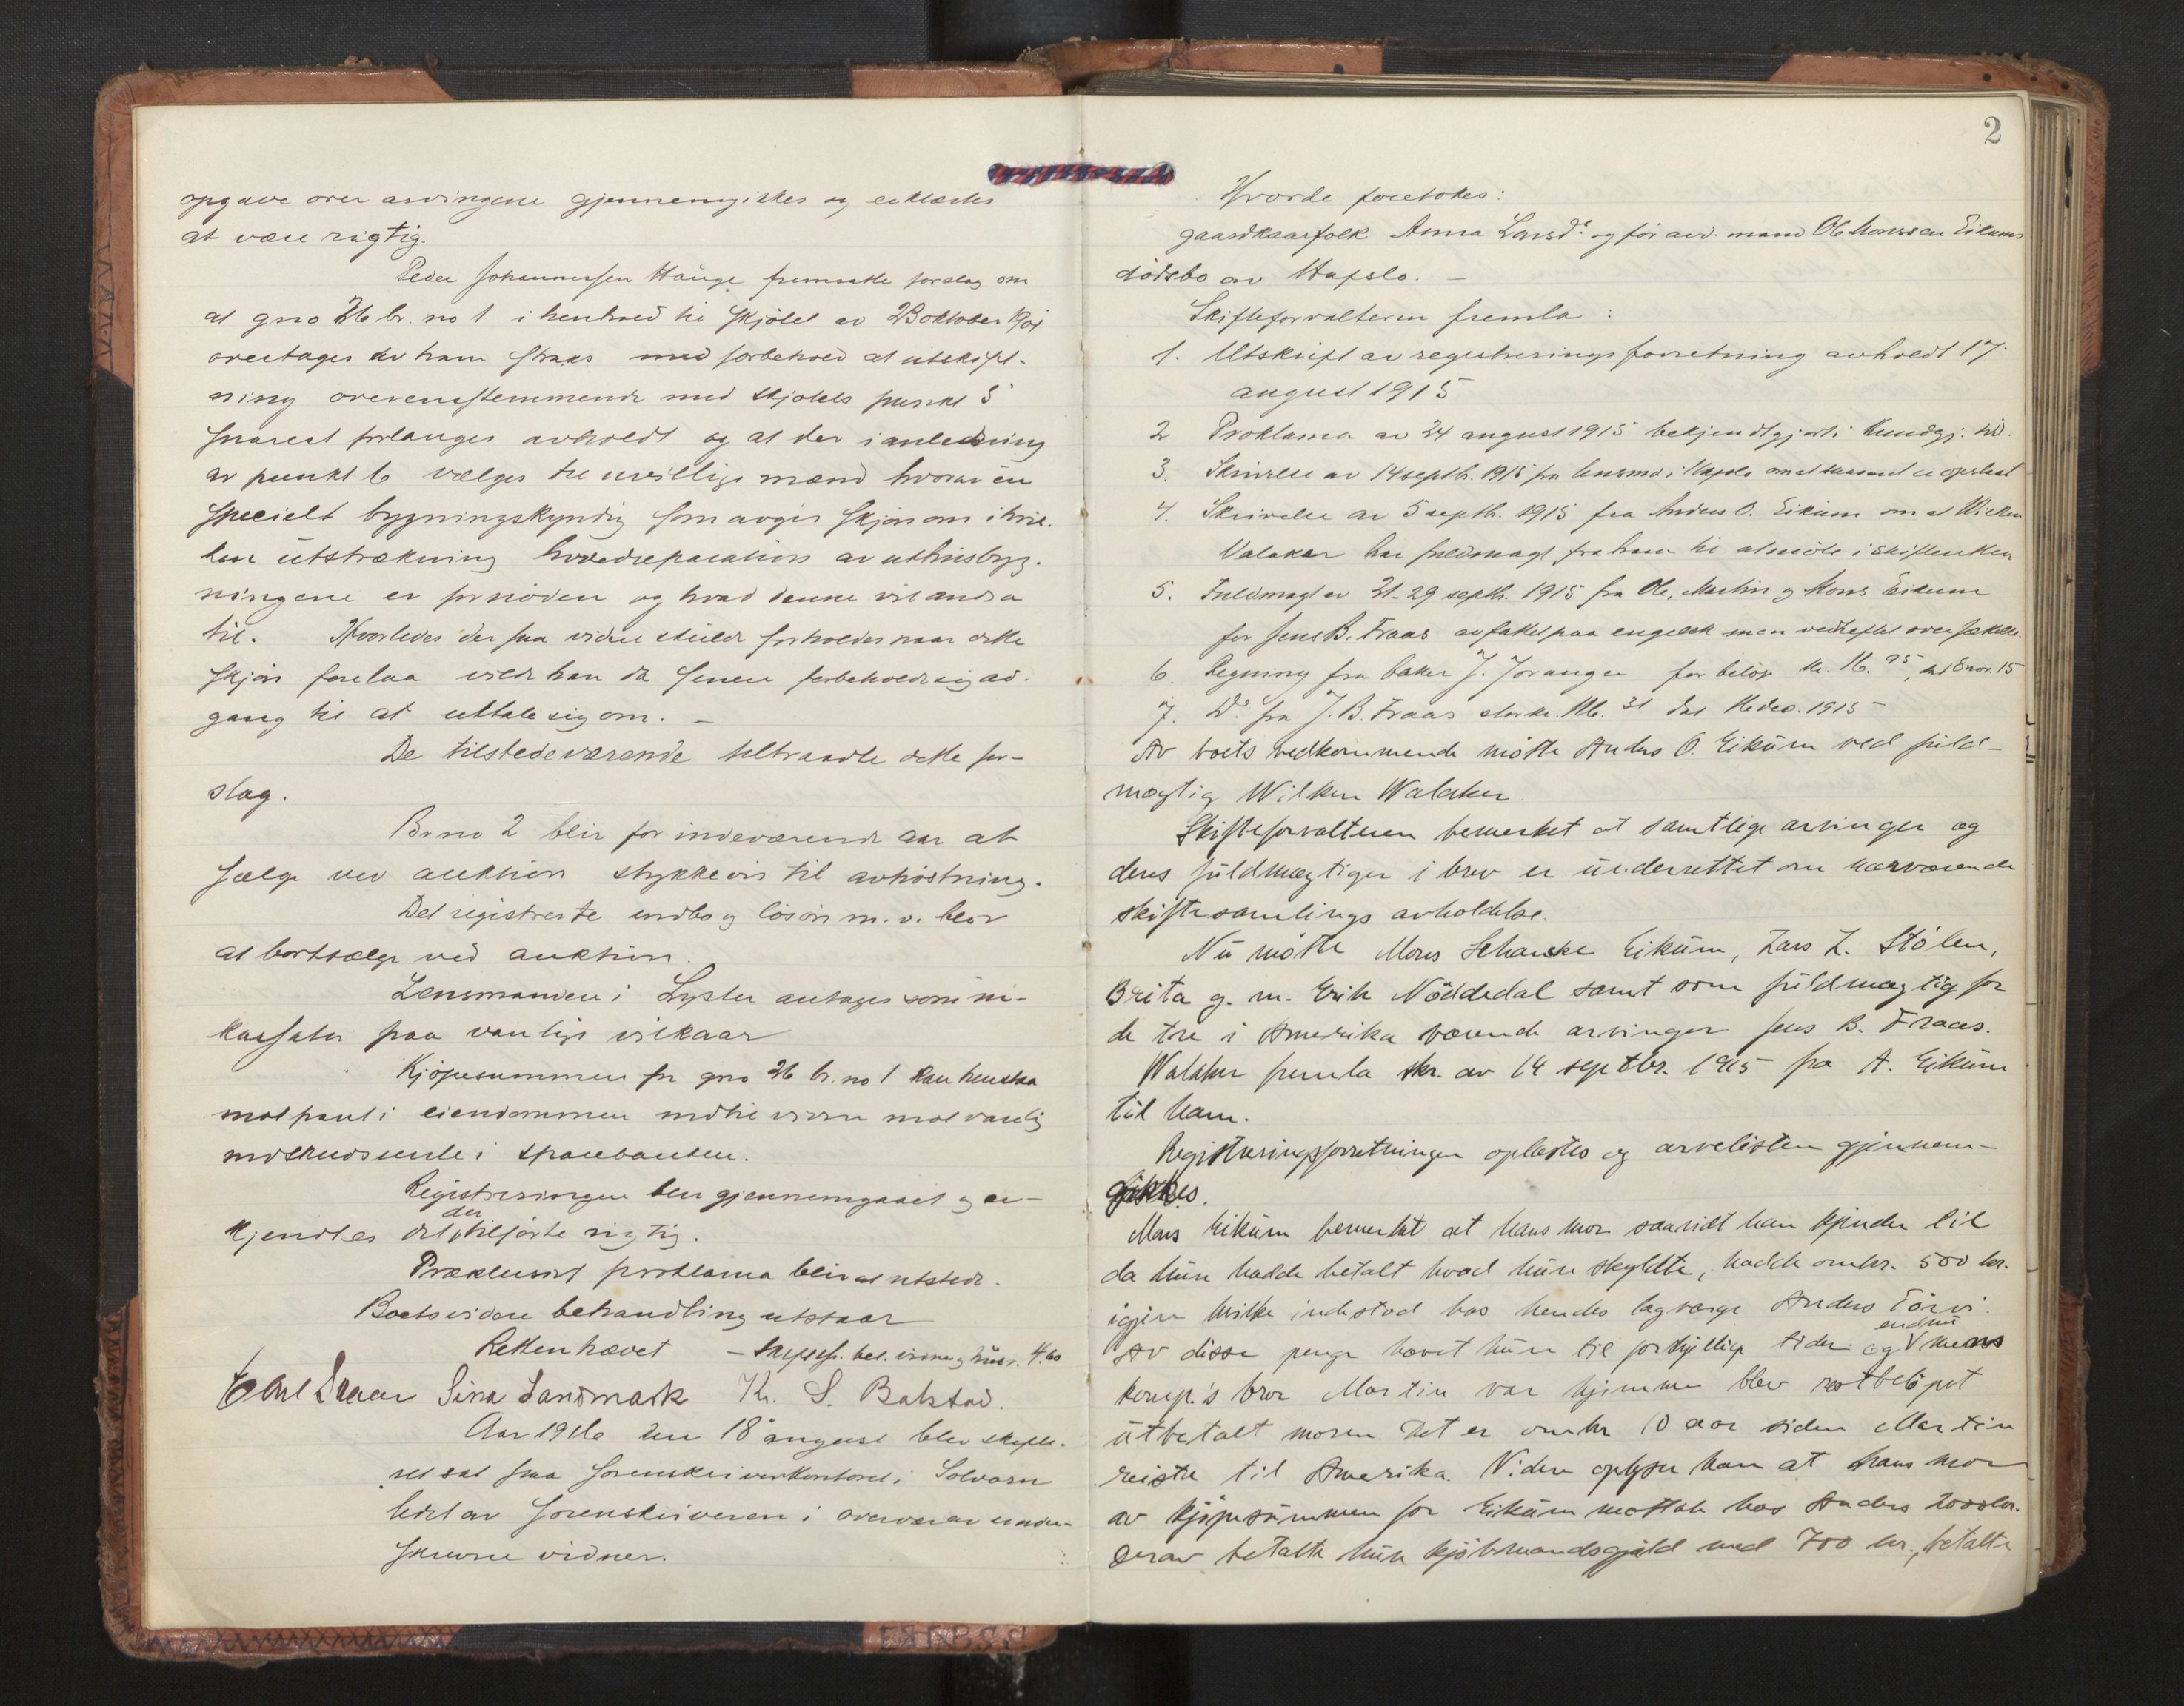 opgave over arvingene gjennemgikkes og erklærtes
at være rigtig.
Peder Johannessen Hauge fremsatte forslag om
at gno 26 br. no 1 i henhold til skjötet av 23 oktober 1901
overtages av ham straks med forbehold at utskift-
ning overensstemmende med skjötets punkt 5
snarest forlanges avholdt og at der i anledning
av punkt 6 vælges tre uvillige mænd hvorav én
specielt bygningskyndig som avgir skjön om i hvil-
ken utstrækning hovedreparation av uthusbyg-
ningene er fornöden og hvad denne vil andra
til. Hvorledes der saa videre skulde forholdes naar dette
skjön forelaa vilde han da senere forbeholde sig ad-
gang til at uttale sig om. –
De tilstedeværende tiltraadte dette for-
slag.
Br no 2 blir for indeværende aar at
sælge ved auktion stykkevis til avhöstning.
Det registrerte indbo og lösöre m. v. blir
at bortsælge ved auktion.
Lensmanden i Lyster antages som in-
kassator paa vanlige vilkaar
Kjöpesummen for gno 26 br. no 1 kan henstaa
mot pant i eiendommen indtil videre mot vanlig
indskudsrente i sparebanken.
Registreringen blev gjennemgaaet og er-
kjendtes det der tilförte rigtig.
Præklusivt proklama blir at utstede.
Boets videre behandling utstaar
Retten hævet – bet. vidne og husr. 4.60
Sina Landmark K. S. Bakstad.
Aar 1916 den 18 august blev skifte-
ret sat paa sorenskriverkontoret i Solvorn
ledet av sorenskriveren i overvær av under-
skrevne vidner.
2
Hvorde foretokes:
gaardkaarfolk Anna Larsd.r og för avd. mand Ole Monssen Eikums
dödsbo av Hafslo. –
Skifteforvalteren fremla:
1. Utskrift av registreringsforretning avholdt 17
august 1915
2 Proklama av 24 august 1915 bekjendtgjort i Kundgj. tid.
3. Skrivelse av 14 septb. 1915 fra lensmd. i Hafslo om at er opslaat
4. Skrivelse av 5 septb. 1915 fra Anders O. Eikum om at Wilken
Walaker har fuldmagt fra ham til at möte i skifteretten
5. Fuldmagt av 21-29 septb. 1915 fra Ole, Martin og Mons Eikum
for Jens B. Fraas avfattet paa engelsk men vedheftet oversættelse.
6. Regning fra baker J. Joranger for belöp kr. 16.95, dat 8 nov. 15
7. Do fra J. B. Fraas stor kr. 116.31 dat 16 dec. 1915 –
Av boets vedkommende mötte Anders O. Eikum ved fuld-
mægtig Wilken Walaker
Skifteforvalteren bemerket at samtlige arvinger og
deres fuldmægtiger i brev er underrettet om nærværende
skiftesamlings avholdelse.
Nu mötte Mons Schanke Eikum, Lars L. Stölen,
Brita g. m. Erik Nöddedal samt som fuldmægtig for
de tre i Amerika værende arvinger Jens B. Fraas.
Walaker fremla skr. av 14 septbr. 1915 fra A. Eikum
til ham.
Registreringsforretningen oplæstes og arvelisten gjennem-
gikkes.
Mons Eikum bemerket at hans mor saavidt han kjender til
da hun hadde betalt hvad hun skyldte, hadde omkr. 500 kr.
igjen hvilke indestod hos hendes lagværge Anders Törvi.
Av disse penge hævet hun til forskjellige tider og endnu mens
komp.'s bror Martin var hjemme blev restbelöpet
utbetalt moren. Det er omkr 10 aar siden Martin
reiste til Amerika. Videre oplyser han at hans mor
av kjöpesummen for Eikum mottok hos Anders 2000 kr.
Derav betalte hun kjöbmandsgjæld med 700 kr., betalte